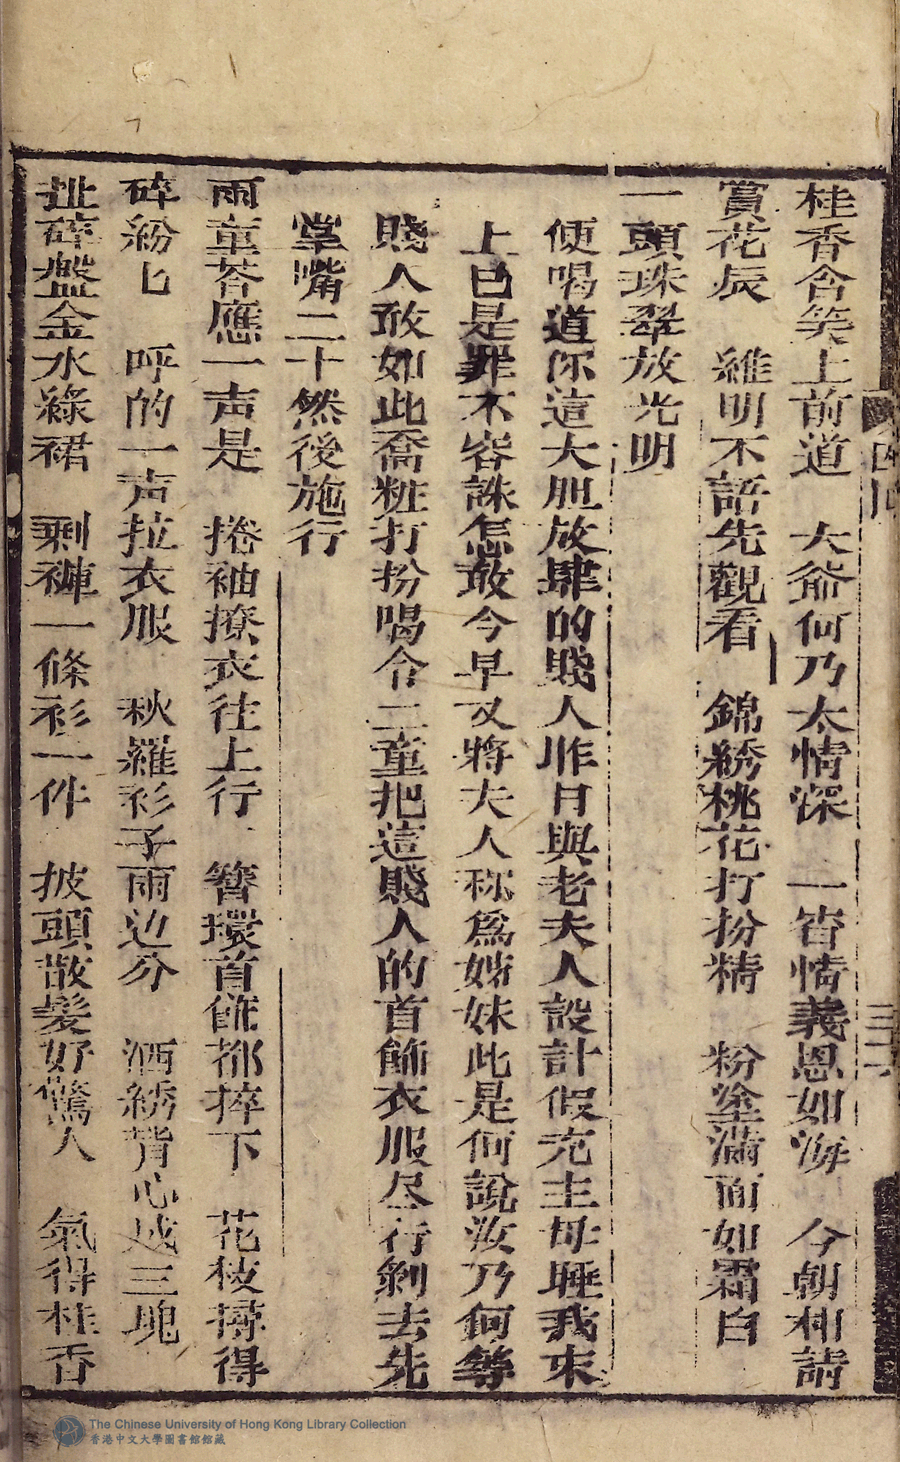 桂香含笑上前道　大爺何乃太情深　一宵情義恩如海　今朝相請
賞花辰　維明不語先觀看　錦綉桃花打扮精　粉塗滿面如霜白
一頭珠翠放光明
便喝道你這大胆放肆的賤人昨日與老夫人設計假充主母睡我床
上已是罪不容誅怎敢今早又將夫人称為姊妹此是何說汝乃何等
賤人敢如此喬粧打扮喝令二童把這賤人的首飾衣服尽行剝去先
掌嘴二十然後施行
兩童荅應一声是　捲袖撩衣往上行　簪環首飾都捽下　花枝撏得
碎紛匕　呼的一声拉衣服　秋羅衫子兩边分　洒綉背心成三塊
扯碎盤金水綠裙　剩褲一條衫一件　披頭散髮好驚人　氣得桂香
The Chinese University of Hong Kong Library Collection
香港中文大學圖書館館藏